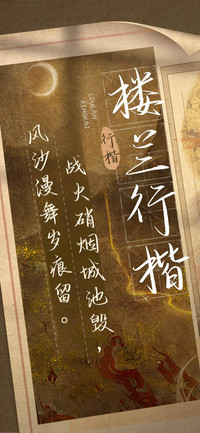 楼兰行楷
行楷
LOULAN
XINGKAI
战火硝烟城池毁，
风沙漫舞岁痕留。